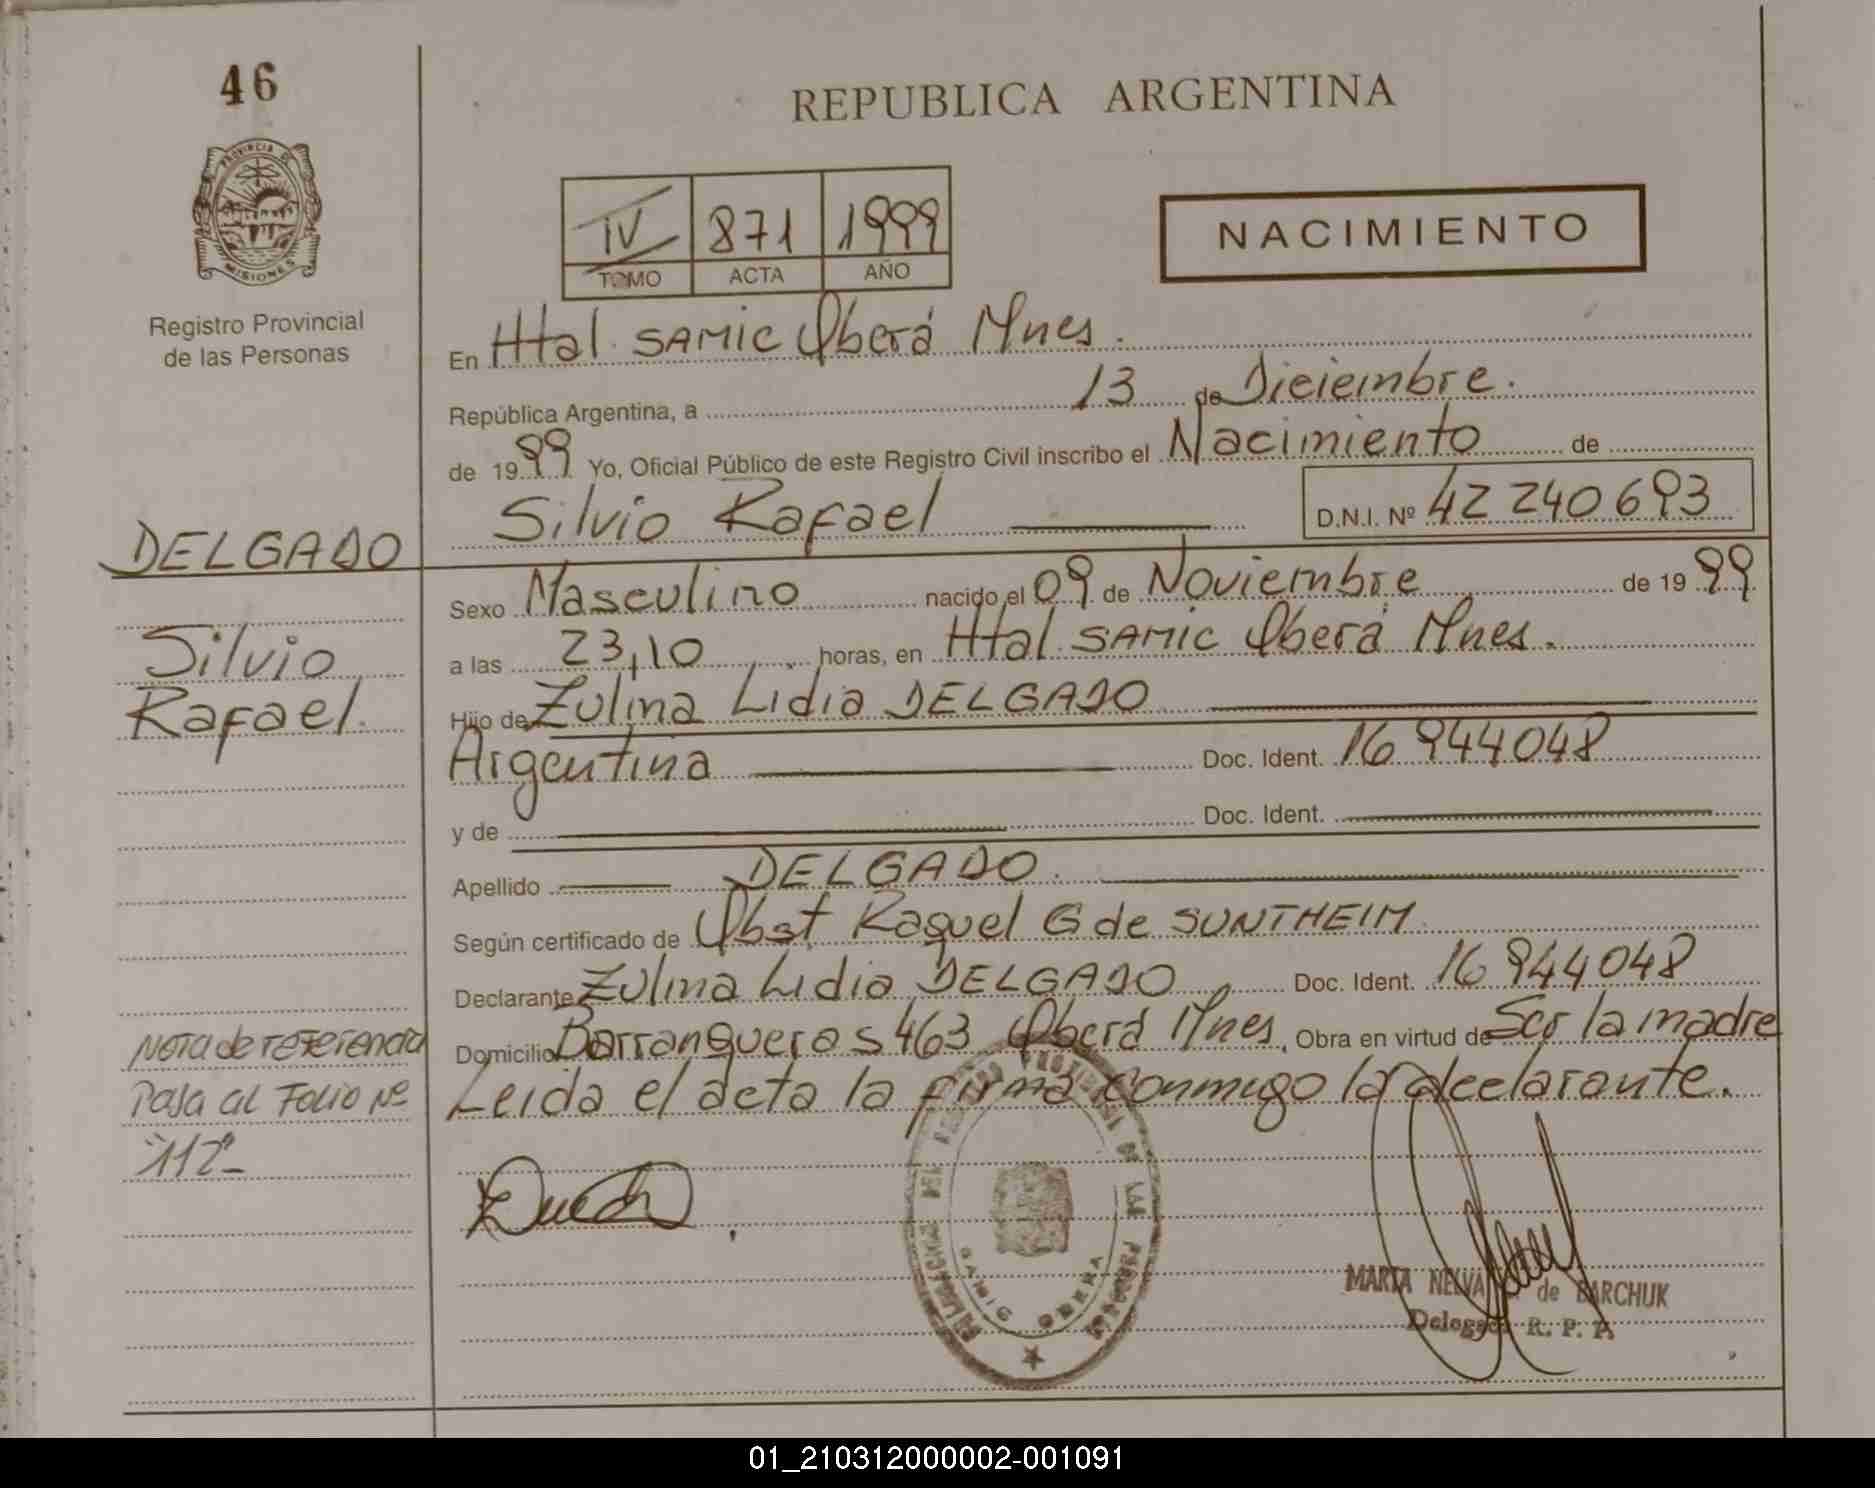 46
REPUBLICA ARGENTINA
PROVINCIA DE
MISIONES
Registro Provincial
de las Personas
IV 871 1999
TOMO ACTA AÑO
NACIMIENTO
En Htal. SAMIC Oberá Mnes.
República Argentina, a 13 de Diciembre.
de 1999 Yo, Oficial Público de este Registro Civil inscribo el Nacimiento de
Silvio Rafael D.N.I. Nº 42 240 693
DELGADO
Silvio
Rafael.
Sexo Masculino nacido el 09 de Noviembre de 1999
a las 23,10 horas, en Htal. SAMIC Oberá Mnes.
Hijo de Zulma Lidia DELGADO
Argentina Doc. Ident. 16 944048
y de Doc. Ident.
Apellido DELGADO.
Según certificado de Obst Raquel G de SUNTHEIM
Declarante Zulma Lidia DELGADO Doc. Ident. 16 944048
Domicilio Barranqueros 463 Oberá Mnes, Obra en virtud de Ser la madre
Leida el acta la firma conmigo la declarante.
Nota de referencia
Pasa al Folio Nº
"112"
SAMIC OBERA
MARTA NELVA de BARCHUK
R. P. P.
01_210312000002-001091